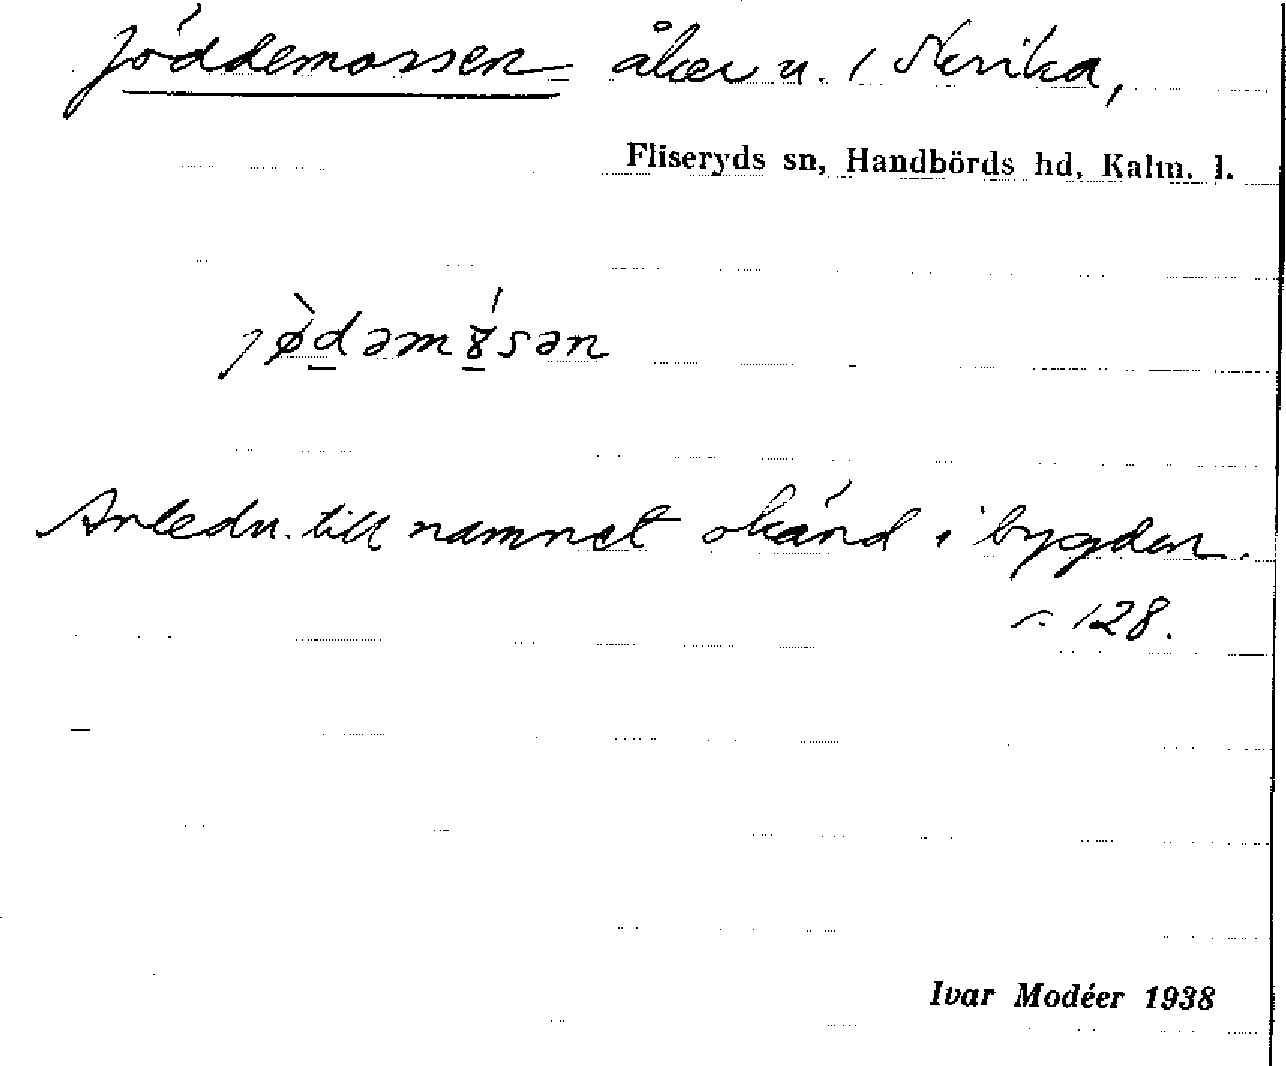 Jöddemossen åker n. 1 Skrika,
Fliseryds sn, Handbörds hd, Kalm. l.
jø̀dəmɤ́sən
Anledn. till namnet okänd i bygden.
s. 128.
Ivar Modéer 1938